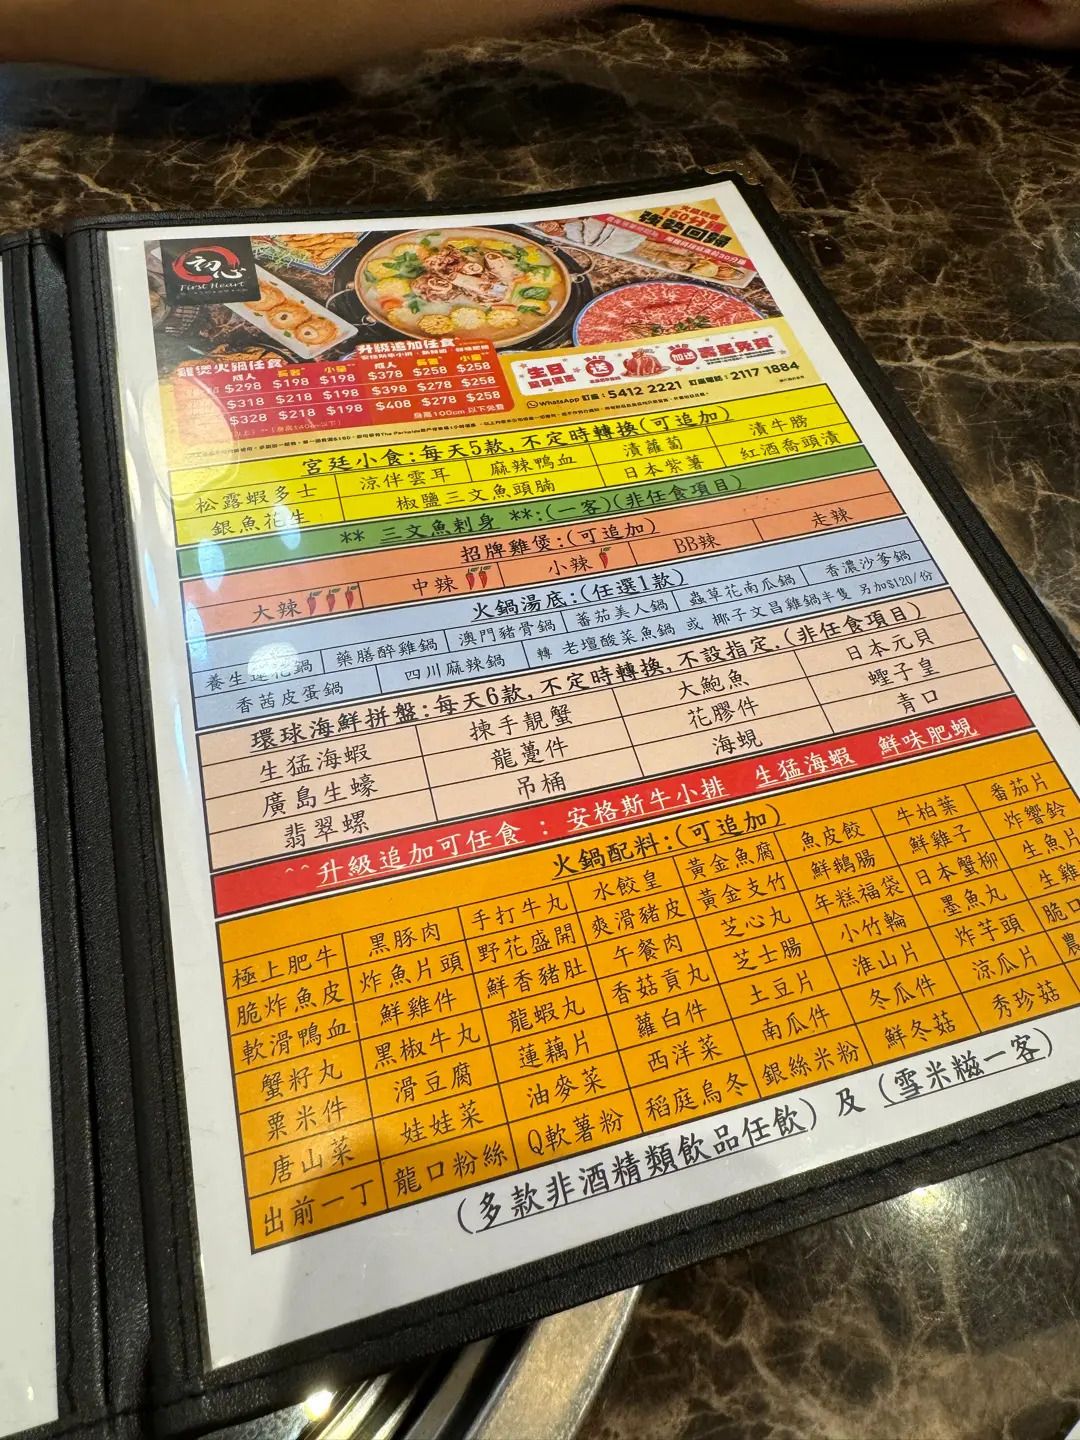 初心
First Heart
150分鐘
強勢回歸
雞煲火鍋任食
升級追加任食
成人 長者 小童
成人 長者 小童
$298 $198 $198 $378 $258 $258
$318 $218 $198 $398 $278 $258
$328 $218 $198 $408 $278 $258
身高100cm 以下免費
生日
送
加送
壽星免費
WhatsApp 訂座：5412 2221 訂座電話：2117 1884
宮廷小食:每天5款,不定時轉換(可追加)
松露蝦多士 涼伴雲耳 麻辣鴨血 漬蘿蔔 漬牛膀
銀魚花生 椒鹽三文魚頭腩 日本紫薯 紅酒喬頭漬
** 三文魚刺身 **:(一客)(非任食項目)
招牌雞煲:(可追加)
大辣 中辣 小辣 BB辣 走辣
火鍋湯底:(任選1款)
養生蓮花鍋 藥膳醉雞鍋 澳門豬骨鍋 蕃茄美人鍋 蟲草花南瓜鍋 香濃沙爹鍋
香茜皮蛋鍋 四川麻辣鍋 轉 老壇酸菜魚鍋 或 椰子文昌雞鍋半隻 另加$120/份
環球海鮮拼盤:每天6款,不定時轉換,不設指定,(非任食項目)
生猛海蝦 揀手靚蟹 大鮑魚 日本元貝
廣島生蠔 龍躉件 花膠件 蟶子皇
翡翠螺 吊桶 海蜆 青口
^^升級追加可任食 : 安格斯牛小排 生猛海蝦 鮮味肥蜆
火鍋配料:(可追加)
極上肥牛 黑豚肉 手打牛丸 水餃皇 黃金魚腐 魚皮餃 牛柏葉 番茄片
脆炸魚皮 炸魚片頭 野花盛開 爽滑豬皮 黃金支竹 鮮鵝腸 鮮雞子 炸響鈴
軟滑鴨血 鮮雞件 鮮香豬肚 午餐肉 芝心丸 年糕福袋 日本蟹柳 生魚片
蟹籽丸 黑椒牛丸 龍蝦丸 香菇貢丸 芝士腸 小竹輪 墨魚丸 生雞
粟米件 滑豆腐 蓮藕片 蘿白件 土豆片 淮山片 炸芋頭 脆口
唐山菜 娃娃菜 油麥菜 西洋菜 南瓜件 冬瓜件 涼瓜片
出前一丁 龍口粉絲 Q軟薯粉 稻庭烏冬 銀絲米粉 鮮冬菇 秀珍菇
(多款非酒精類飲品任飲) 及 (雪米糍一客)